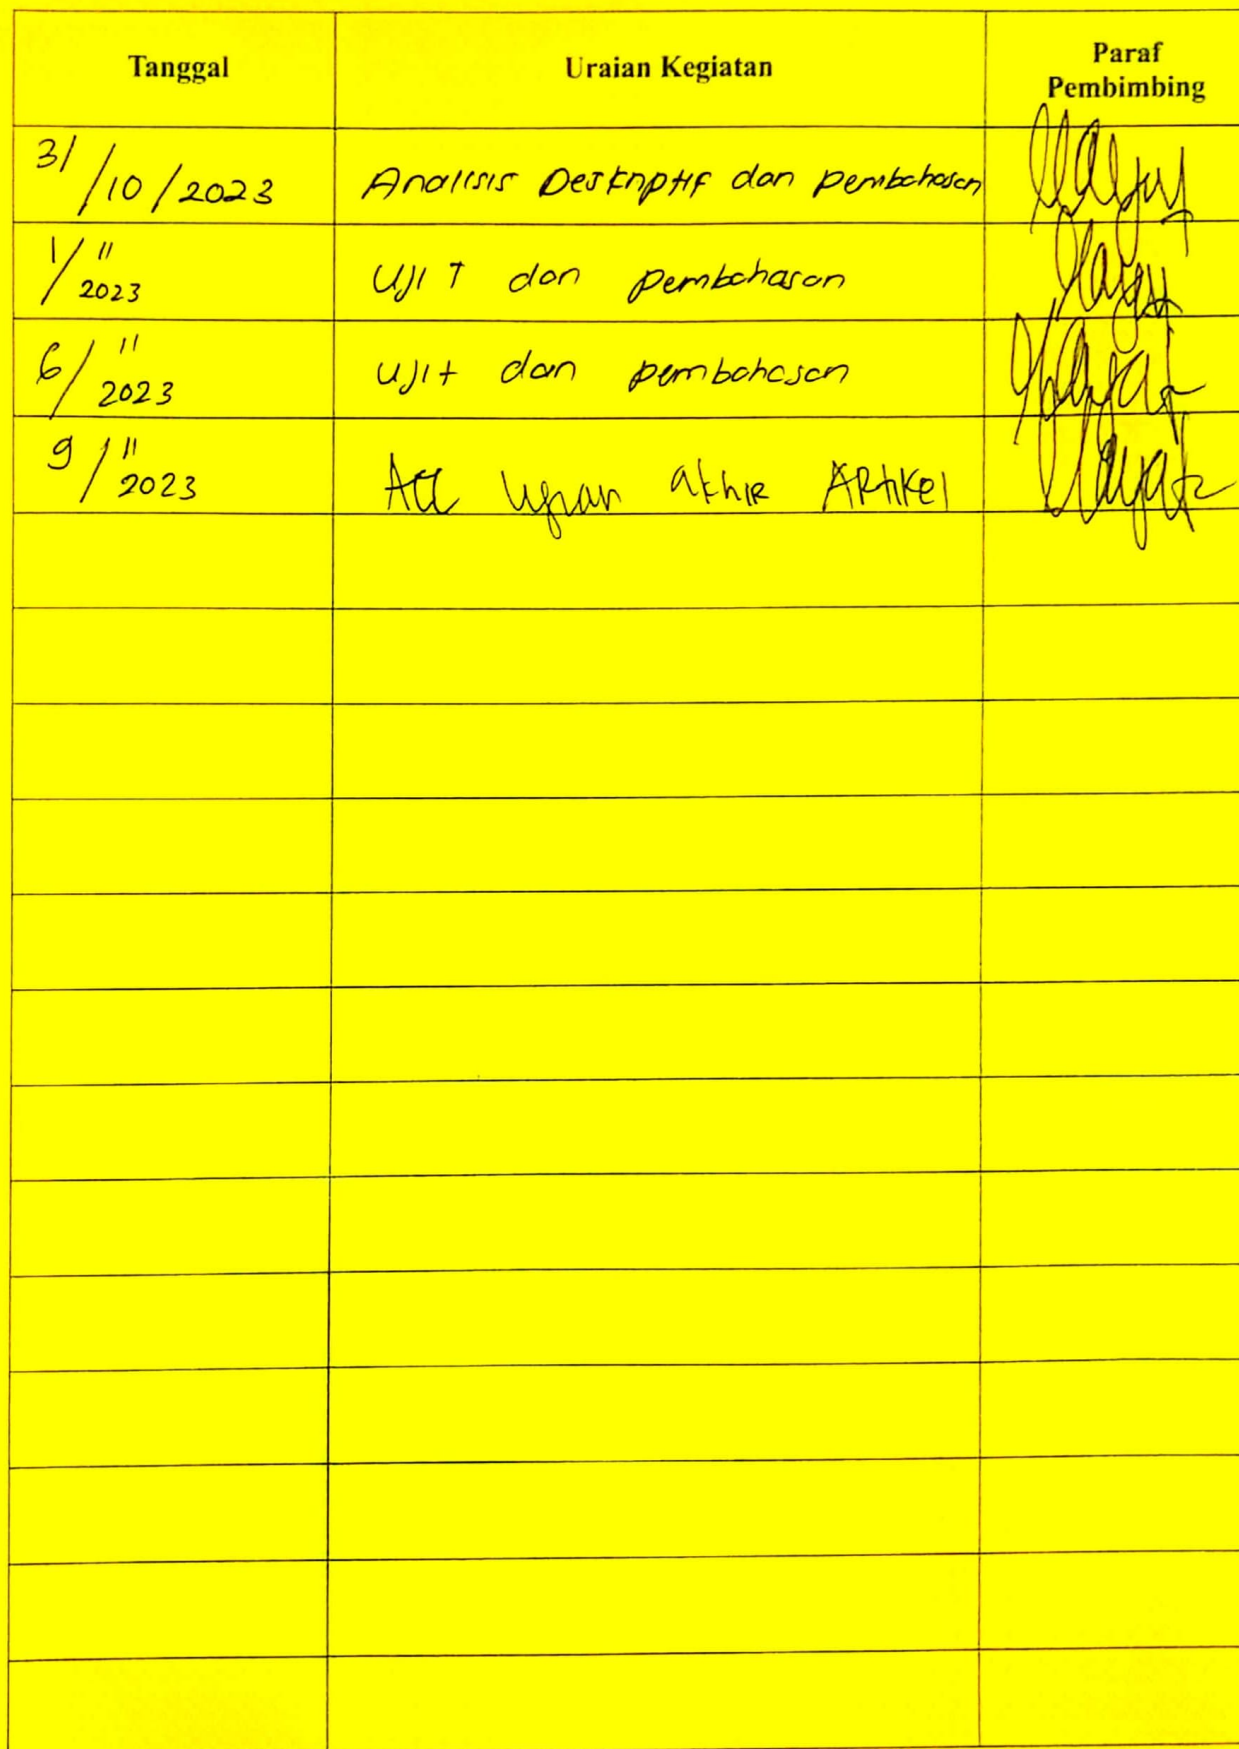 Tanggal Uraian Kegiatan Paraf Pembimbing
31/10/2023 Analisis Deskriptif dan pembahasan
1/11 2023 Uji T dan pembahasan
6/11 2023 Uji t dan pembahasan
9/11 2023 Acc Ujian akhir ARtikel